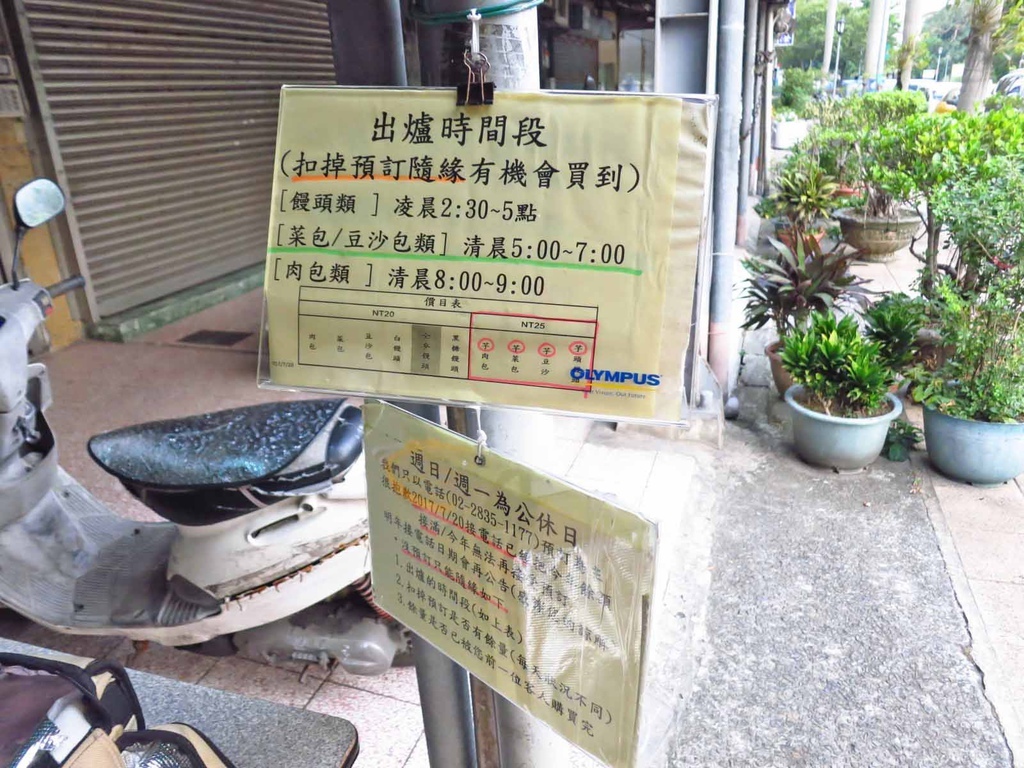 出爐時間段
(扣掉預訂隨緣有機會買到)
[饅頭類 ] 凌晨2:30~5點
[菜包/豆沙包類] 清晨5:00~7:00
[肉包類 ] 清晨8:00~9:00
價目表
NT20 NT25
肉包 菜包 豆沙包 白饅頭 黑糖饅頭 芋肉包 芋菜包 芋豆沙 芋頭
OLYMPUS
週日/週一為公休日
我們只以電話(02-2835-1177)預訂
很抱歉2017/7/20接電話已
接滿/今年無法再
明年接電話日期會再公告
沒預訂只能隨緣如下
1.出爐的時間段(如上表)
2.扣掉預訂是否有餘量(每天狀況不同)
3.餘量是否已被您前一位客人購買完